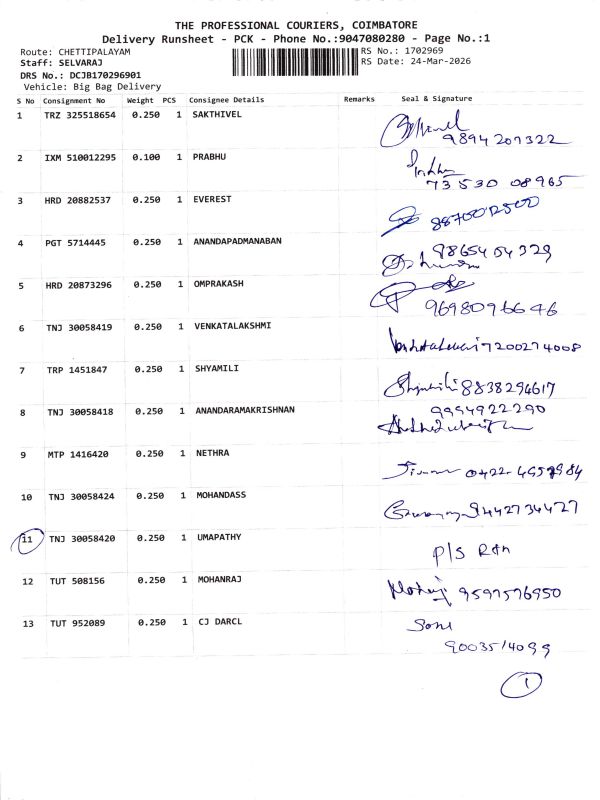 THE PROFESSIONAL COURIERS, COIMBATORE
Delivery Runsheet - PCK - Phone No.:9047080280 - Page No.:1
Route: CHETTIPALAYAM RS No.: 1702969
Staff: SELVARAJ RS Date: 24-Mar-2026
DRS No.: DCJB170296901
Vehicle: Big Bag Delivery
S No Consignment No Weight PCS Consignee Details Remarks Seal & Signature
1 TRZ 325518654 0.250 1 SAKTHIVEL
9894207322
2 IXM 510012295 0.100 1 PRABHU
73530 08965
3 HRD 20882537 0.250 1 EVEREST
4 PGT 5714445 0.250 1 ANANDAPADMANABAN
9865454329
5 HRD 20873296 0.250 1 OMPRAKASH
9698096646
6 TNJ 30058419 0.250 1 VENKATALAKSHMI
7200274008
7 TRP 1451847 0.250 1 SHYAMILI
8838294617
8 TNJ 30058418 0.250 1 ANANDARAMAKRISHNAN
9994922290
9 MTP 1416420 0.250 1 NETHRA
10 TNJ 30058424 0.250 1 MOHANDASS
9442734427
11 TNJ 30058420 0.250 1 UMAPATHY
P/S Rtn
12 TUT 508156 0.250 1 MOHANRAJ
9597576950
13 TUT 952089 0.250 1 CJ DARCL
9003514099
1